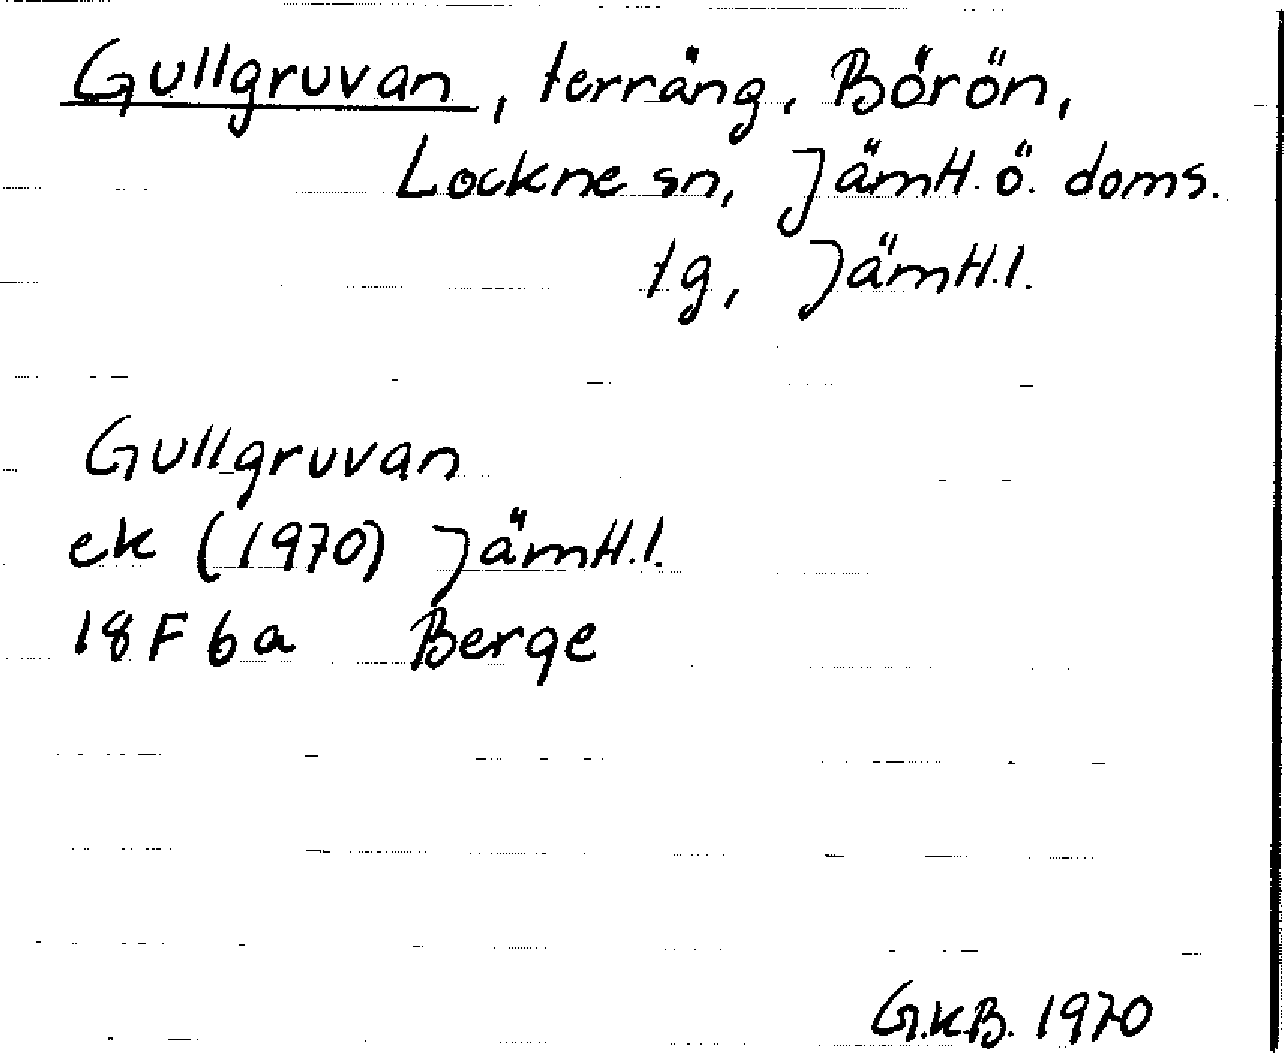 Gullgruvan, terräng, Börön,
Lockne sn, Jämtl. ö. doms.
tg, Jämtl. l.
Gullgruvan
ek (1970) Jämtl. l.
18 F 6 a Berge
G.K.B. 1970